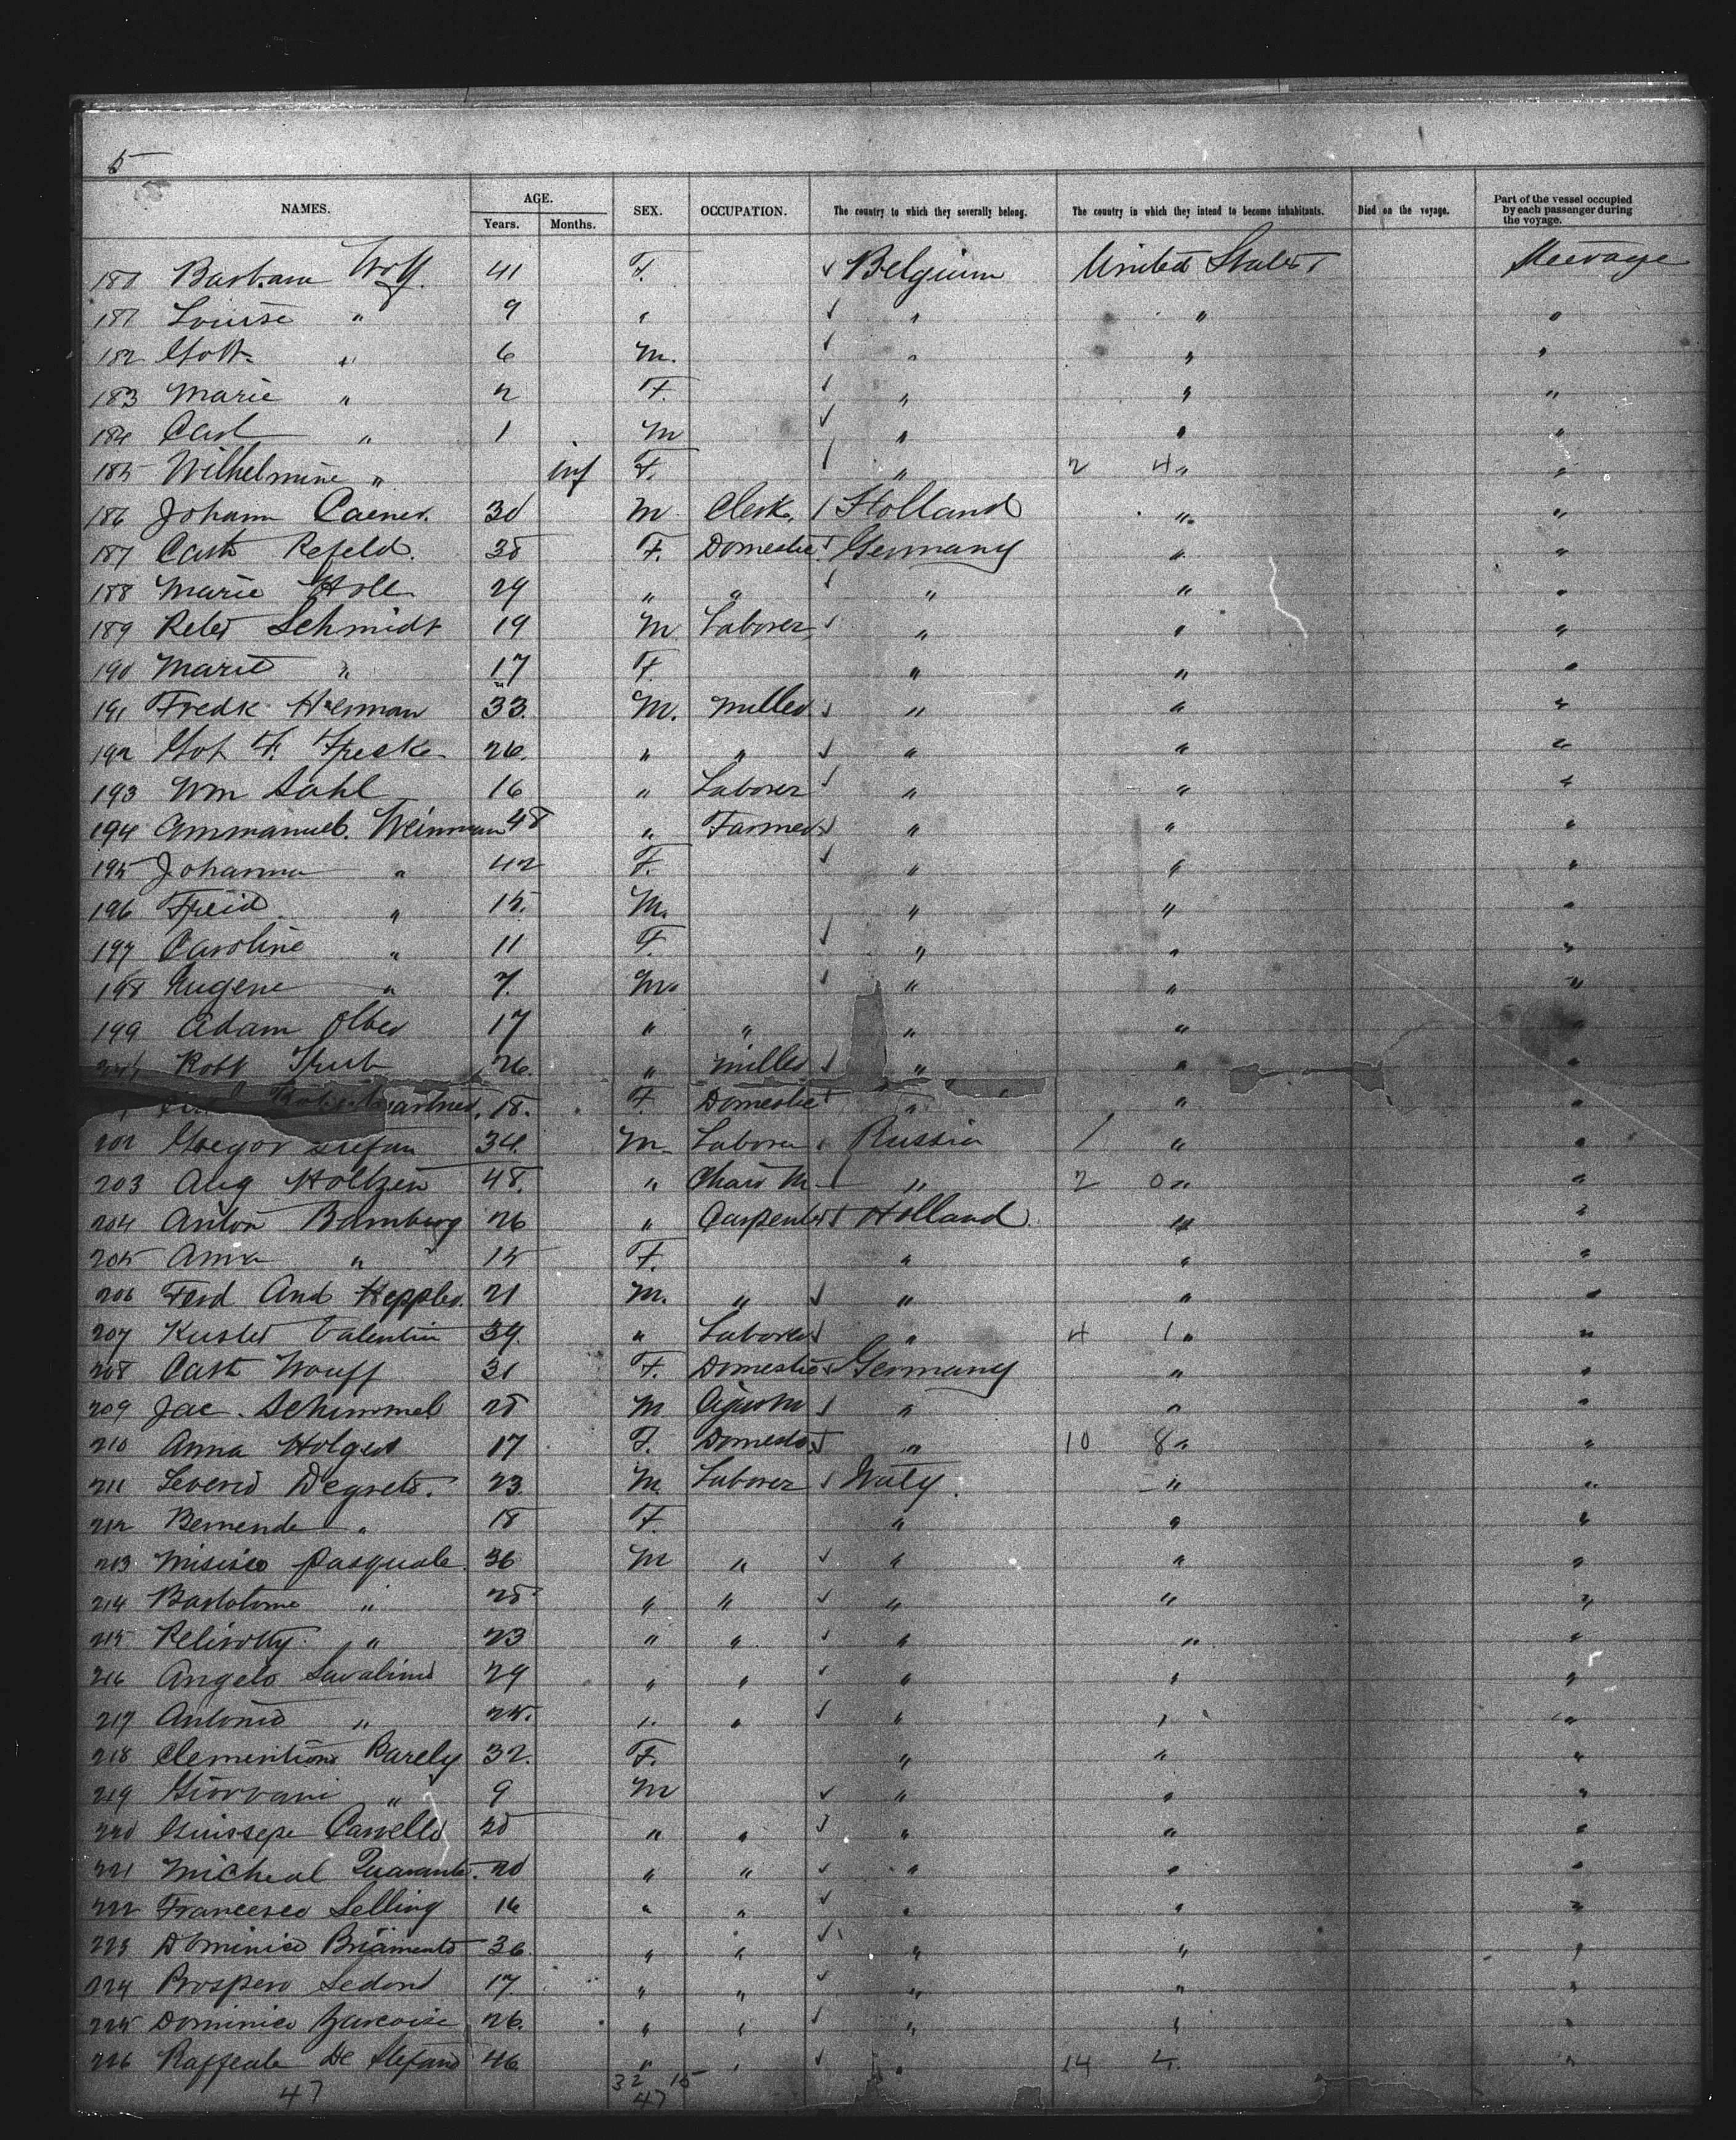 5
NAMES. AGE. Years. Months. SEX. OCCUPATION. The country to which they severally belong. The country in which they intend to become inhabitants. Died on the voyage. Part of the vessel occupied by each passenger during the voyage.
180 Barbara Wolf. 41 F. ✓ Belgium United States Steerage
181 Louise " 9 " ✓ " " "
182 Gott. " 6 M. ✓ " " "
183 Marie " 2 F. ✓ " " "
184 Carl " 1 M ✓ " " "
185 Wilhelmine " inf F. / " 2 4 " "
186 Johann 30 M Clerk. / Holland " "
187 Cath Refeld. 35 F. Domestic ✓ Germany " "
188 Marie Holl 29 " " ✓ " " "
189 Peter Schmidt 19 M Laborer ✓ " " "
190 Marie " 17 F. " " "
191 Fredk Herman 33. M. Miller ✓ " " "
192 Got F. 26. " " ✓ " " "
193 Wm Sahl 16 " Laborer ✓ " " "
194 Ammanuel. Weinman 48 " Farmer ✓ " " "
195 Johanna " 42 F. ✓ " " "
196 " 15. M. " " "
197 Caroline " 11 F. ✓ " " "
198 Eugene " 7. M. ✓ " " "
199 Adam Olber 17 " " " " "
Robt 26. " Miller ✓ " " "
18. F. Domestic " " "
202 Gregor Stefan 34. M. Laborer Russia / " "
203 Aug Holtzen 48. " Chair M. " 2 0 " "
204 Anton Bamberg 26 " Carpenter Holland " "
205 Anna " 15 F. " " "
206 Ferd And Keppler. 21 M. " ✓ " " "
207 Kuster Valentin 39. " Laborer ✓ " 4 1 " "
208 Cath Wouff 31 F. Domestic ✓ Germany " "
209 Jac. Schimmel 28 M Cigar M ✓ " " "
210 Anna Holger 17 F. Domestc ✓ " 10 8 " "
211 Severio Degreto. 23. M Laborer ✓ Italy. " "
212 " 18 F. " " "
213 Pasquale. 36 M " ✓ " " "
214 Bartolome " 28 " " ✓ " " "
215 " 23 " " ✓ " " "
216 Angelo Savalino 29 " " ✓ " " "
217 Antonio " 25. " " ✓ " " "
218 Barely 32. F. " " "
219 Giovani " 9 M ✓ " " "
220 Guissepe Carrello 20 " " ✓ " " "
221 Micheal Quarante. 20 " " ✓ " " "
222 Francesco Selling 16 " " ✓ " " "
223 Dominico 36. " " ✓ " " "
224 Prospero Sedono 17. " " ✓ " " "
225 Dominico 26. " " ✓ " " "
226 Raffeale De Stefano 46 " " ✓ " 14 4. "
47 32 15
47